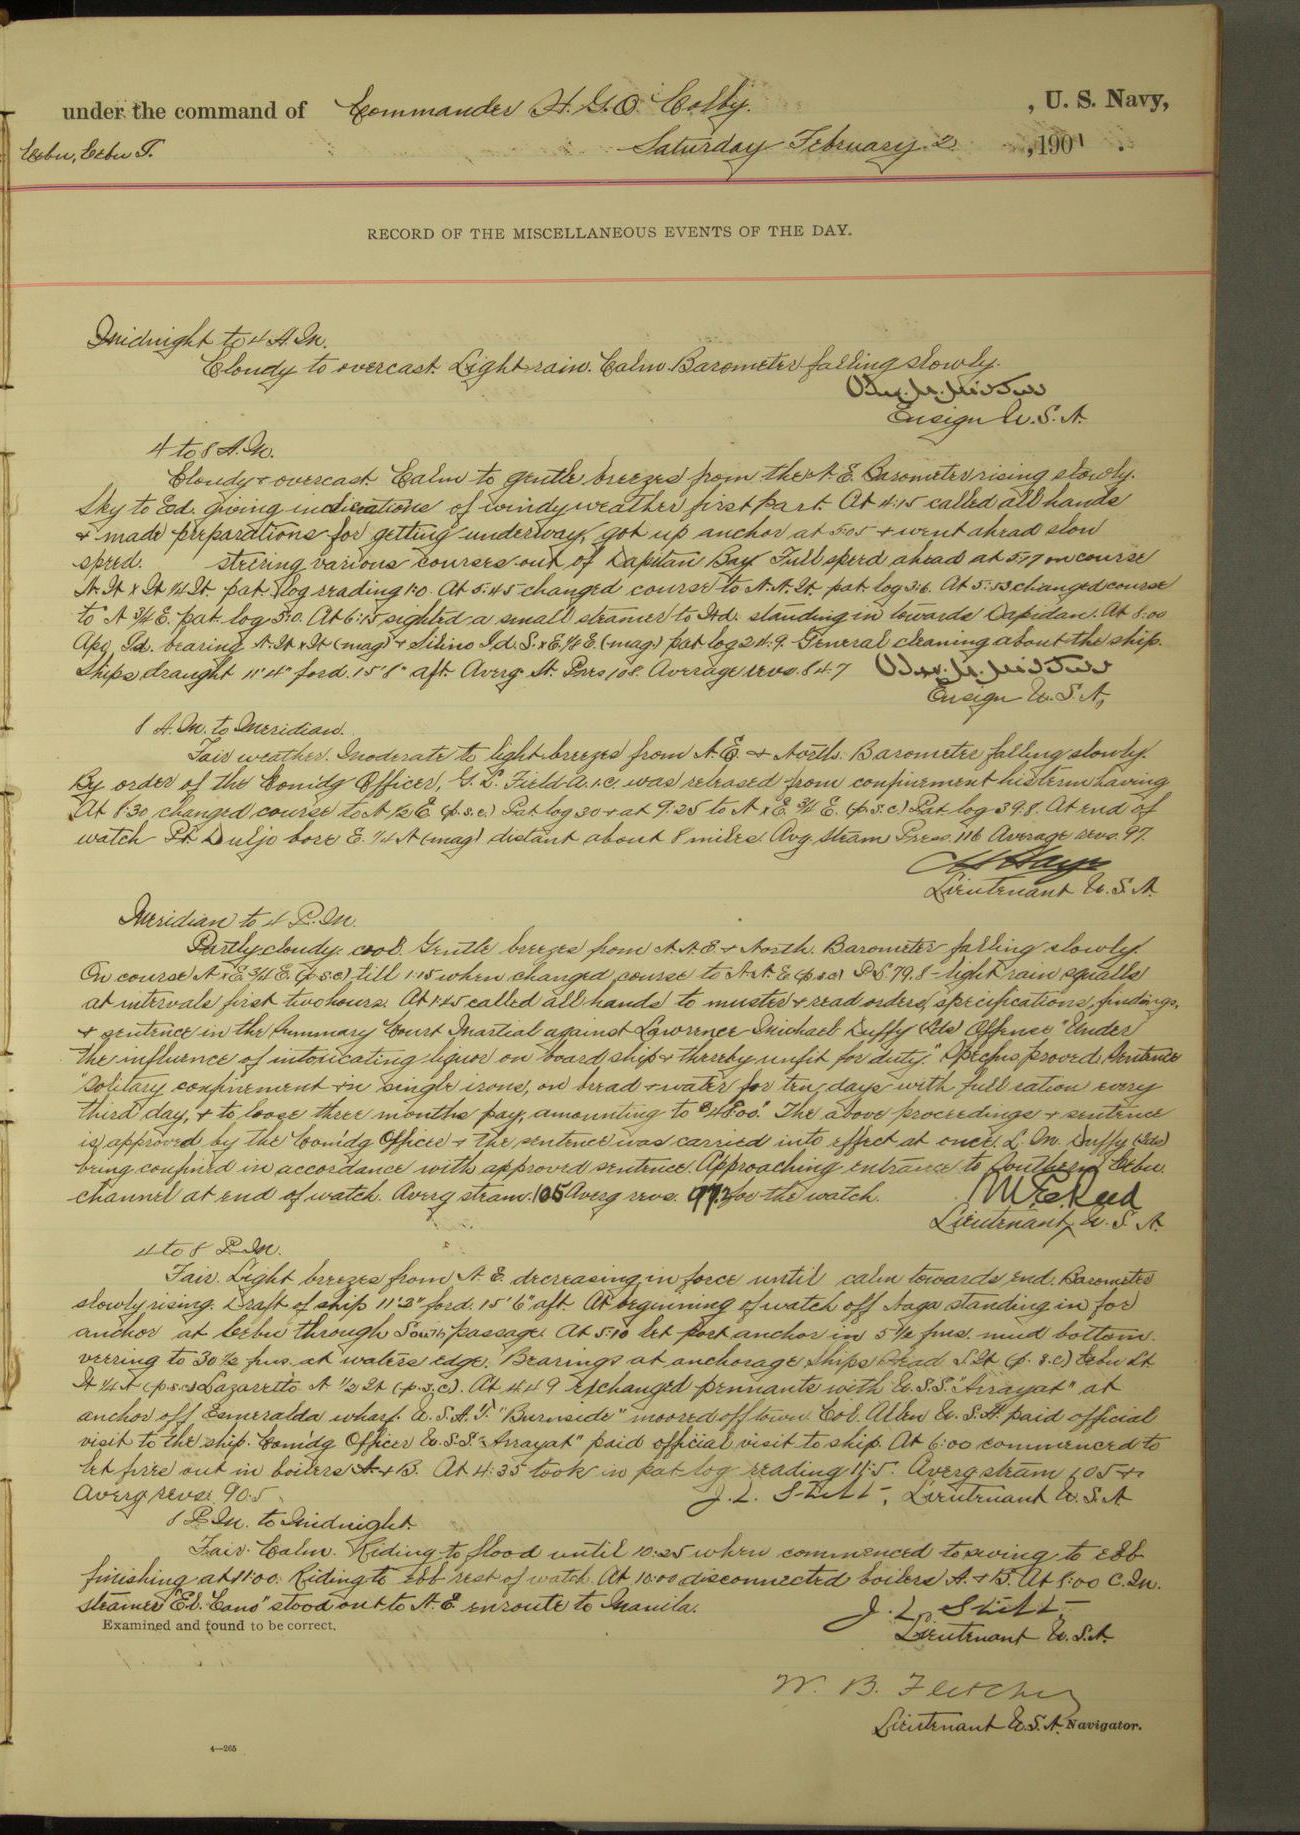 under the command of Commander H. G. O. Colby. , U. S. Navy,
Cebu, Cebu I. Saturday February 2 , 1901 .
RECORD OF THE MISCELLANEOUS EVENTS OF THE DAY.
Midnight to 4 A.M.
Cloudy to overcast. Light rain. Calm. Barometer falling slowly.
Ensign U.S.N.
4 to 8 A.M.
Cloudy & overcast. Calm to gentle breezes from the N.E. Barometer rising slowly.
Sky to Ed. giving indications of windy weather first part. At 4:15 called all hands
& made preparations for getting underway, got up anchor at 5:05 & went ahead slow
speed. steering various courses out of Dapitan Bay. Full speed ahead at 5:17 on course
N.W x W 1/4 W. pat. log reading 1.0. At 5:45 changed course to N.N.W. pat. log 3.6. At 5:53 changed course
to N 3/4 E. pat. log 5.0. At 6:15 sighted a small steamer to Wd. standing in towards Dapidan. At 8:00
Apo Id. bearing N.W x W (mag) & Silino Id. S. x E. 1/4 E. (mag) pat log 24.9. General cleaning about the ship.
Ships draught 11' 4" ford. 15' 8" aft. Averg. St. Pres 108. Average revs. 84.7
Ensign U.S.N.,
8 A.M. to Meridian.
Fair weather. Moderate to light breezes from N.E. & North. Barometer falling slowly.
By order of the Com'dg Officer, G. L. Field A.1.C. was released from confinement his term having
At 8:30 changed course to N 1/2 E (p.s.c.) Pat log 30 & at 9:25 to N x E. 3/4 E. (p.s.c) Pat log 39.8. At end of
watch Pt Duljo bore E. 1/4 N (mag) distant about 8 miles. Avg steam Press. 116 Average revs. 97.
Lieutenant U.S.N.
Meridian to 4 P.M.
Partly cloudy, cool. Gentle breezes from N.N.E & North. Barometer falling slowly.
On course N x E 3/4 E. (p.s.c) till 1:15 when changed course to N.N.E (p.s.c) P.L. 79.8 - light rain squalls
at intervals first two hours. At 1:45 called all hands to muster & read orders, specifications, findings,
& sentence in the Summary Court Martial against Lawrence Michael Duffy (Lds) Offense "Under
the influence of intoxicating liquor on board ship & thereby unfit for duty." Specfns, proved. Sentence
"Solitary confinement & in single irons, on bread & water for ten days with full ration every
third day, & to loose three months pay, amounting to $48.00." The above proceedings & sentence
is approved by the Com'dg Officer & the sentence was carried into effect at once, L. M. Duffy (Lds)
being confined in accordance with approved sentence. Approaching entrance to Southern Cebu
channel at end of watch. Averg steam. 105 Averg revs. 97.2 for the watch.
Lieutenant, U.S.N.
4 to 8 P.M.
Fair. Light breezes from N.E. decreasing in force until calm towards end. Barometer
slowly rising. Draft of ship 11' 3" ford. 15' 6" aft. At beginning of watch off Naga standing in for
anchor at Cebu through South passage. At 5:10 let port anchor in 5 1/2 fms. mud bottom.
veering to 30 1/2 fms. at waters edge. Bearings at anchorage Ships head S.W (p.s.c) Cebu Lt
W 1/4 N (p.s.c) Lazaretto N 1/2 W (p.s.c). At 4:49 exchanged pennants with U.S.S. "Arayat" at
anchor off Esmeralda wharf. U.S.A.T. "Burnside" moored off town. Col. Allen U.S.A. paid official
visit to the ship. Com'dg Officer U.S.S. "Arayat" paid official visit to ship. At 6:00 commenced to
let fires out in boilers A & B. At 4:35 took in pat log reading 11.5. Averg steam 105 &
Averg revs. 90.5 J. L. Sticht, Lieutenant U.S.N
8 P.M. to Midnight.
Fair. Calm. Riding to flood until 10:25 when commenced to swing to ebb
finishing at 11:00. Riding to ebb rest of watch. At 10:00 disconnected boilers A. & B. At 8:00 C.M.
steamer "El Cano" stood out to N.E. enroute to Manila.
J. L. Sticht
Examined and found to be correct.
Lieutenant U.S.N.
W. B. Fletcher
Lieutenant U.S.N. Navigator.
4—265